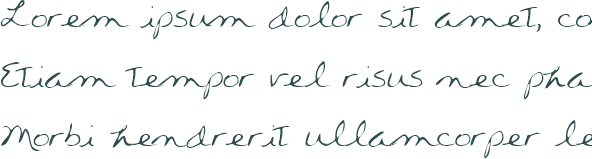 Lorem ipsum dolor sit amet, co
Etiam tempor vel risus nec pha
Morbi hendrerit ullamcorper le